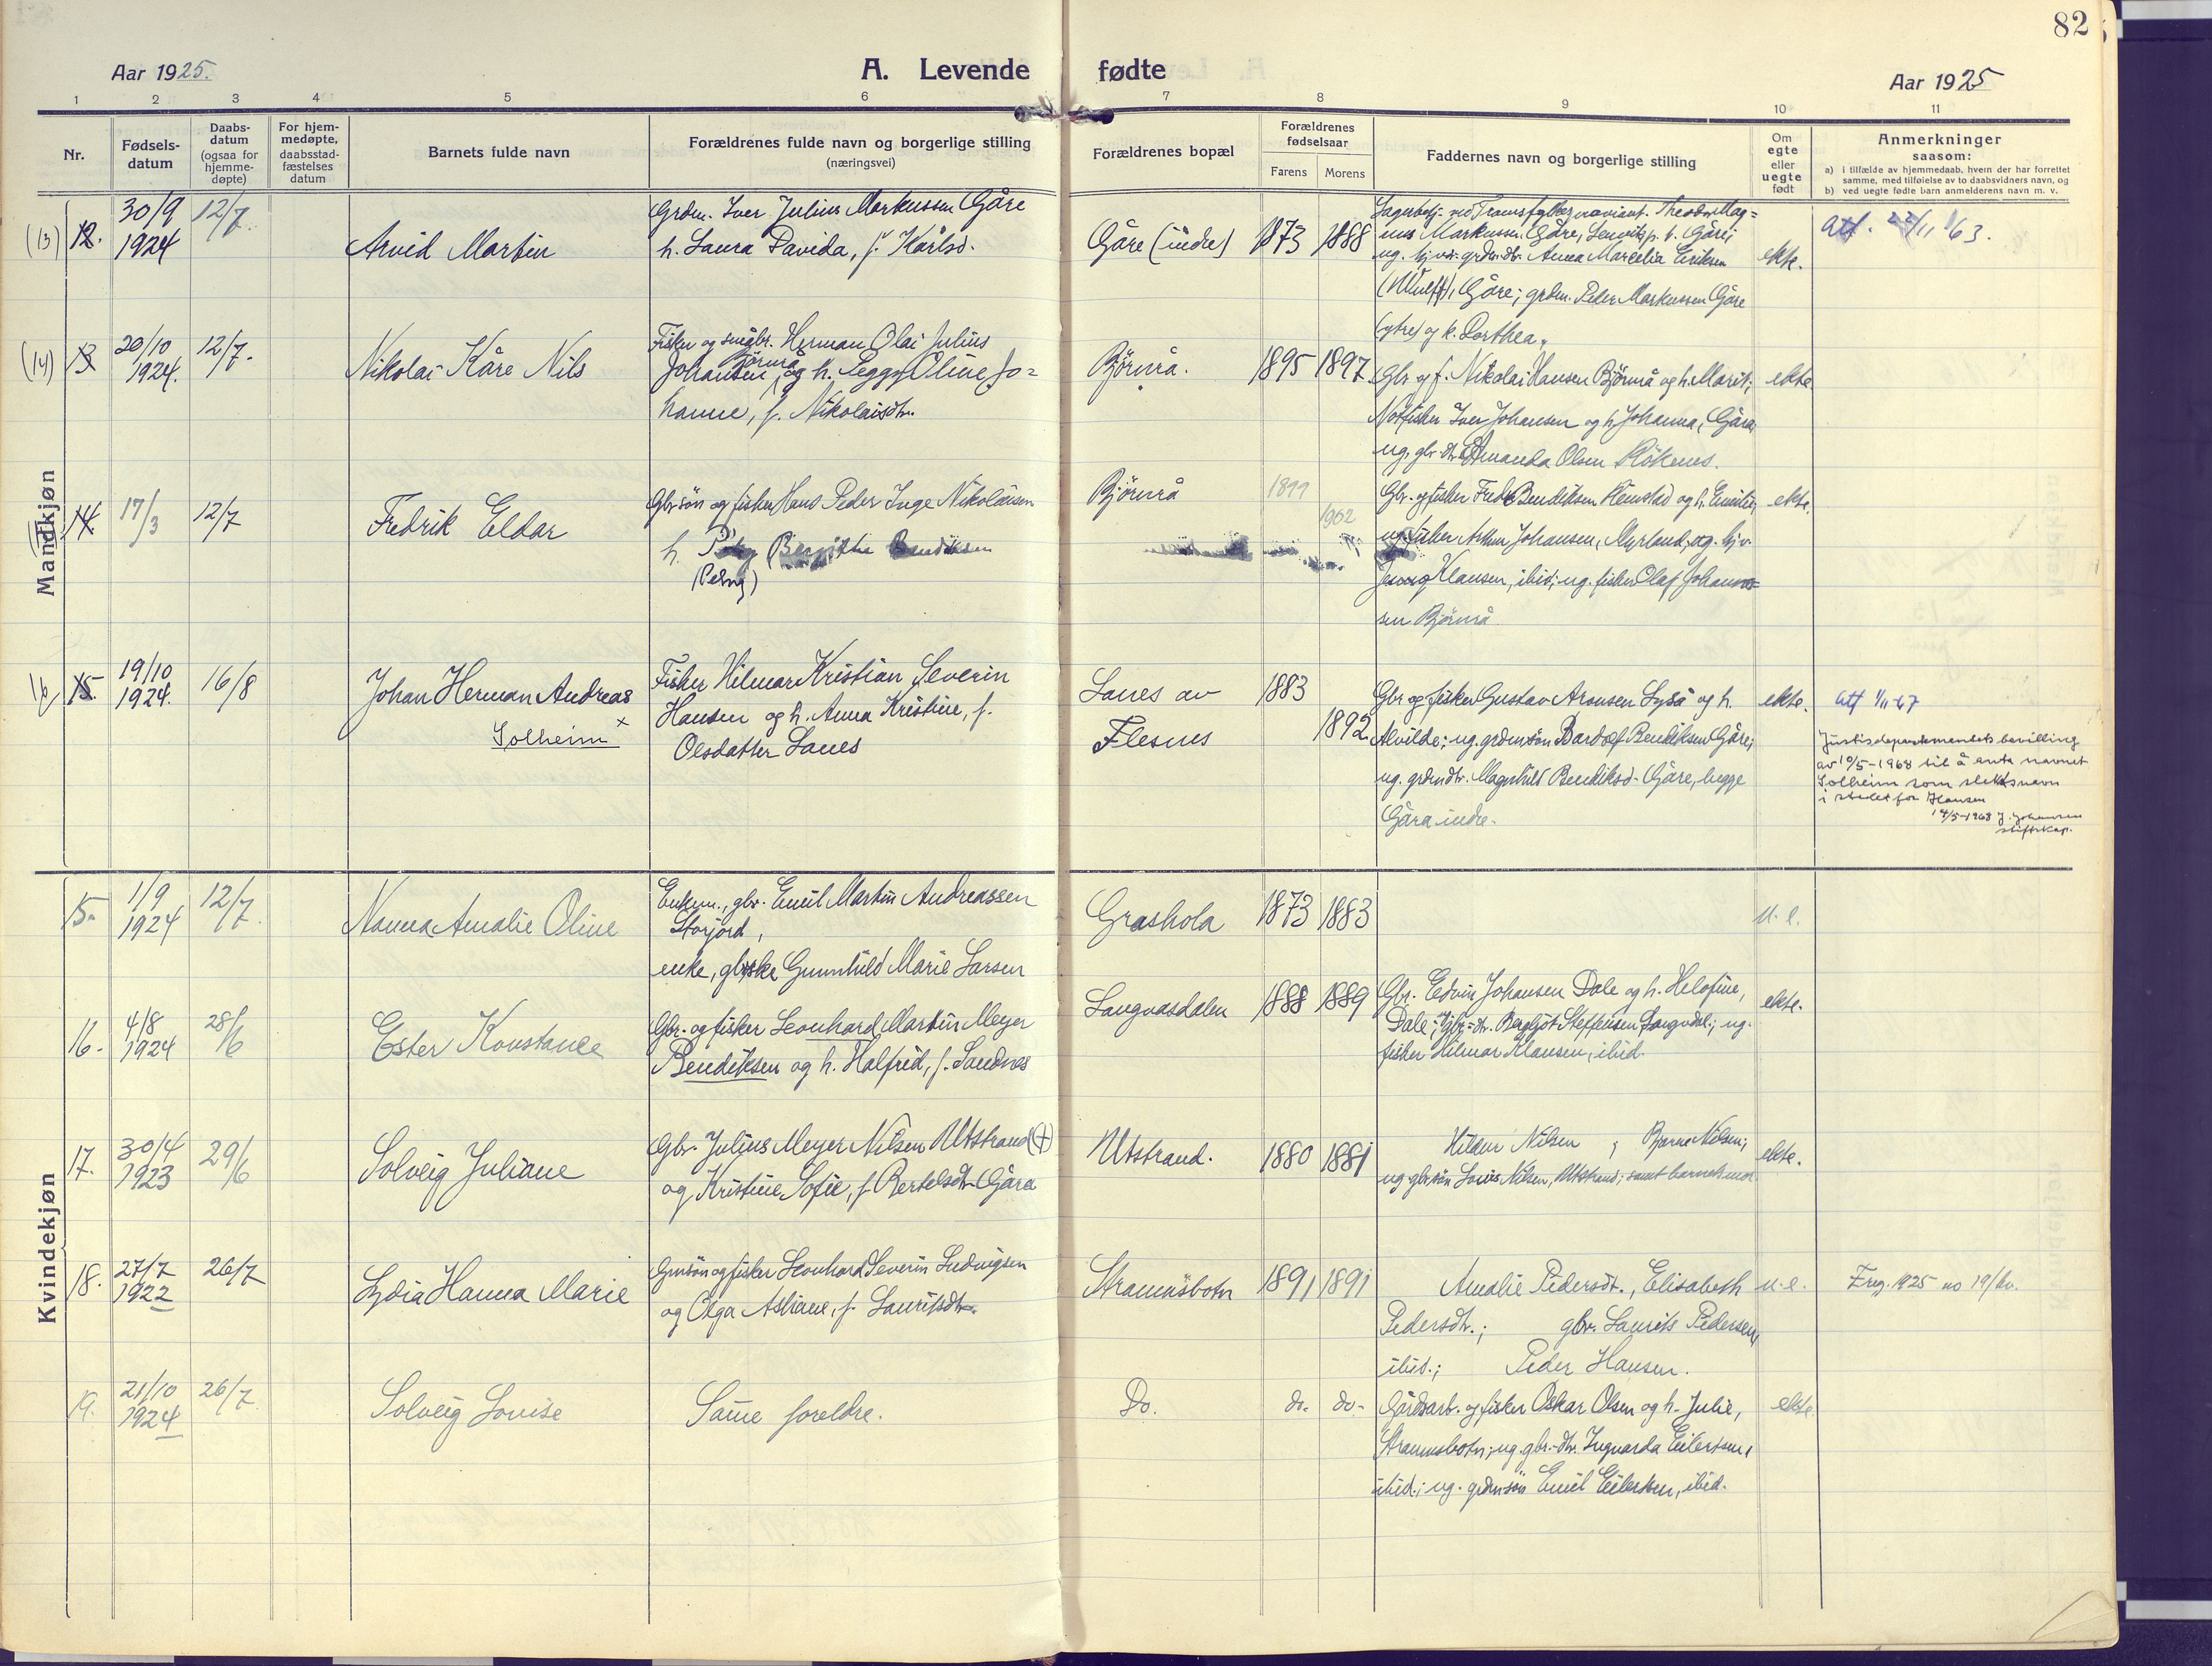 82
Aar 1925.
A. Levende fødte
Aar 1925
1 2 3 4 5 6 7 8 9 10 11
Nr.
Fødsels-
datum
Daabs-
datum
(ogsaa for
hjemme-
døpte)
For hjem-
medøpte,
daabsstad-
fæstelses
datum
Barnets fulde navn
Forældrenes fulde navn og borgerlige stilling
(næringsvei)
Forældrenes bopæl
Forældrenes
fødselsaar
Farens Morens
Faddernes navn og borgerlige stilling
Om
egte
eller
uegte
født
Anmerkninger
saasom:
a) i tilfælde av hjemmedaab, hvem der har forrettet
samme, med tilføielse av to daabsvidners navn, og
b) ved uegte fødte barn anmelderens navn m. v.
Mandkjøn
(13) 12.
30/9
1924
12/7.
Arvid Martin
Grdm. Iver Julius Markussen Gåre
h. Laura Davida, f. Karlsd.
Gåre (indre)
1873 1888
nus Markussen Gåre,
ug. grdm.dtr. Anna Marcelia Eriksen
Gåre; grdm. Peder Markussen Gåre
(ytre) og h. Dorthea.
ekte.
Att. 22/11 63.
(14) 13
20/10
1924.
12/7.
Nikolai Kåre Nils
Fisker og småbr. Herman Olai Julius
Johansen Bjørnrå og h. Peggy Oline Jo=
hanne, f. Nikolaisdtr.
Bjørnrå.
1895 1897.
Gbr. og f. Nikolai Hansen Bjørnrå og h. Marit;
Notfisker Iver Johansen og h. Johanna, Gåra,
ug. gbr. dtr. Amanda Olsen Röknes.
ekte
14
17/3
12/7
Fredrik Eldar
Gbrsön og fisker Hans Peder Inge Nikolaisen
h. Bergitha Bendiksen
Bjørnrå
1899
1902
Gbr. og fisker Fredr. Bendiksen og h. Emilie;
ug. fisker Johansen, Myrland; ug.
Klausen, ibid; ug. fisker Olaf Johann=
sen Bjørnrå
ekte.
16 15.
19/10
1924.
16/8
Johan Herman Andreas
Solheim x
Fisker Hilmar Kristian Severin
Hansen og h. Anna Kristine, f.
Olsdatter Lanes
Lanes av
Flesnes
1883
1892.
Gbr. og fisker Gustav Aronsen Lyså og h.
Alvilde; ug. grdmsön Bardolf Bendiksen Gåre;
ug. grdmdtr. Magnhild Bendiksd. Gåre, begge
Gåra indre.
ekte.
Att 1/11-67
Justisdepartementets bevilling
av 10/5-1968 til å anta navnet
Solheim som slektsnavn
i stedet for Hansen
14/5-1968 J. Johansen
stiftskap.
Kvindekjøn
15.
1/9
1924
12/7.
Nanna Amalie Oline
Enkem., gbr. Emil Martin Andreassen
Storjord,
enke, gbrske Gunnhild Marie Larsen
Grashola
1873 1883
u. e.
16.
4/8
1924
28/6
Ester Konstance
Gbr. og fisker Leonhard Martin Meyer
Bendiksen og h. Halfrid, f. Sandnes
Langvasdalen
1888 1889
Gbr. Edvin Johansen Dale og h. Helofine,
Dale; gbr.-dtr. Bergljot Steffensen Langvdal.; ug.
fisker Hilmar Klausen, ibid.
ekte.
17.
30/4
1923
29/6
Solveig Juliane
Gbr. Julius Meyer Nilsen Utstrand (+)
og Kristine Sofie, f. Bertelsdtr. Gåra
Utstrand.
1880 1881
Hildur Nilsen ; Bjarne Nilsen;
ug. gbrsön Louis Nilsen, Utstrand; samt barnets mor
ekte.
18.
27/7
1922
26/7
Lydia Hanna Marie
Gmsön og fisker Leonhard Severin Ludvigsen
og Olga Asliane, f. Lauritsdtr.
Straumsbotn
1891 1891
Amalie Pedersdt., Elisabeth
Pedersdtr.; gbr. Laurits Pedersen,
ibid.; Peder Hansen.
u. e.
Freg. 1925 no 19/kv.
19.
21/10
1924
26/7.
Solveig Lovise
Same foreldre.
Do.
do. do.
Gårdsarb. og fisker Oskar Olsen og h. Julie,
Straumsbotn; ug. gbr.-dtr. Ingvarda Eilertsen,
ibid.; ug. grdmsön Emil Eilertsen, ibid.
ekte